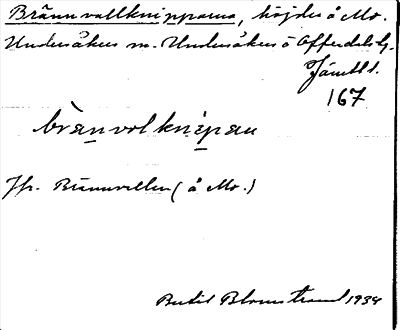 Brännvallknipparna, höjder å Mo.
Undersåker m. Undersåkers o Offerdals tg.
Jämtl.
167
brànvolknipan
Jfr. Brännvallen (å Mo.)
Bertil Blomstrand 1934